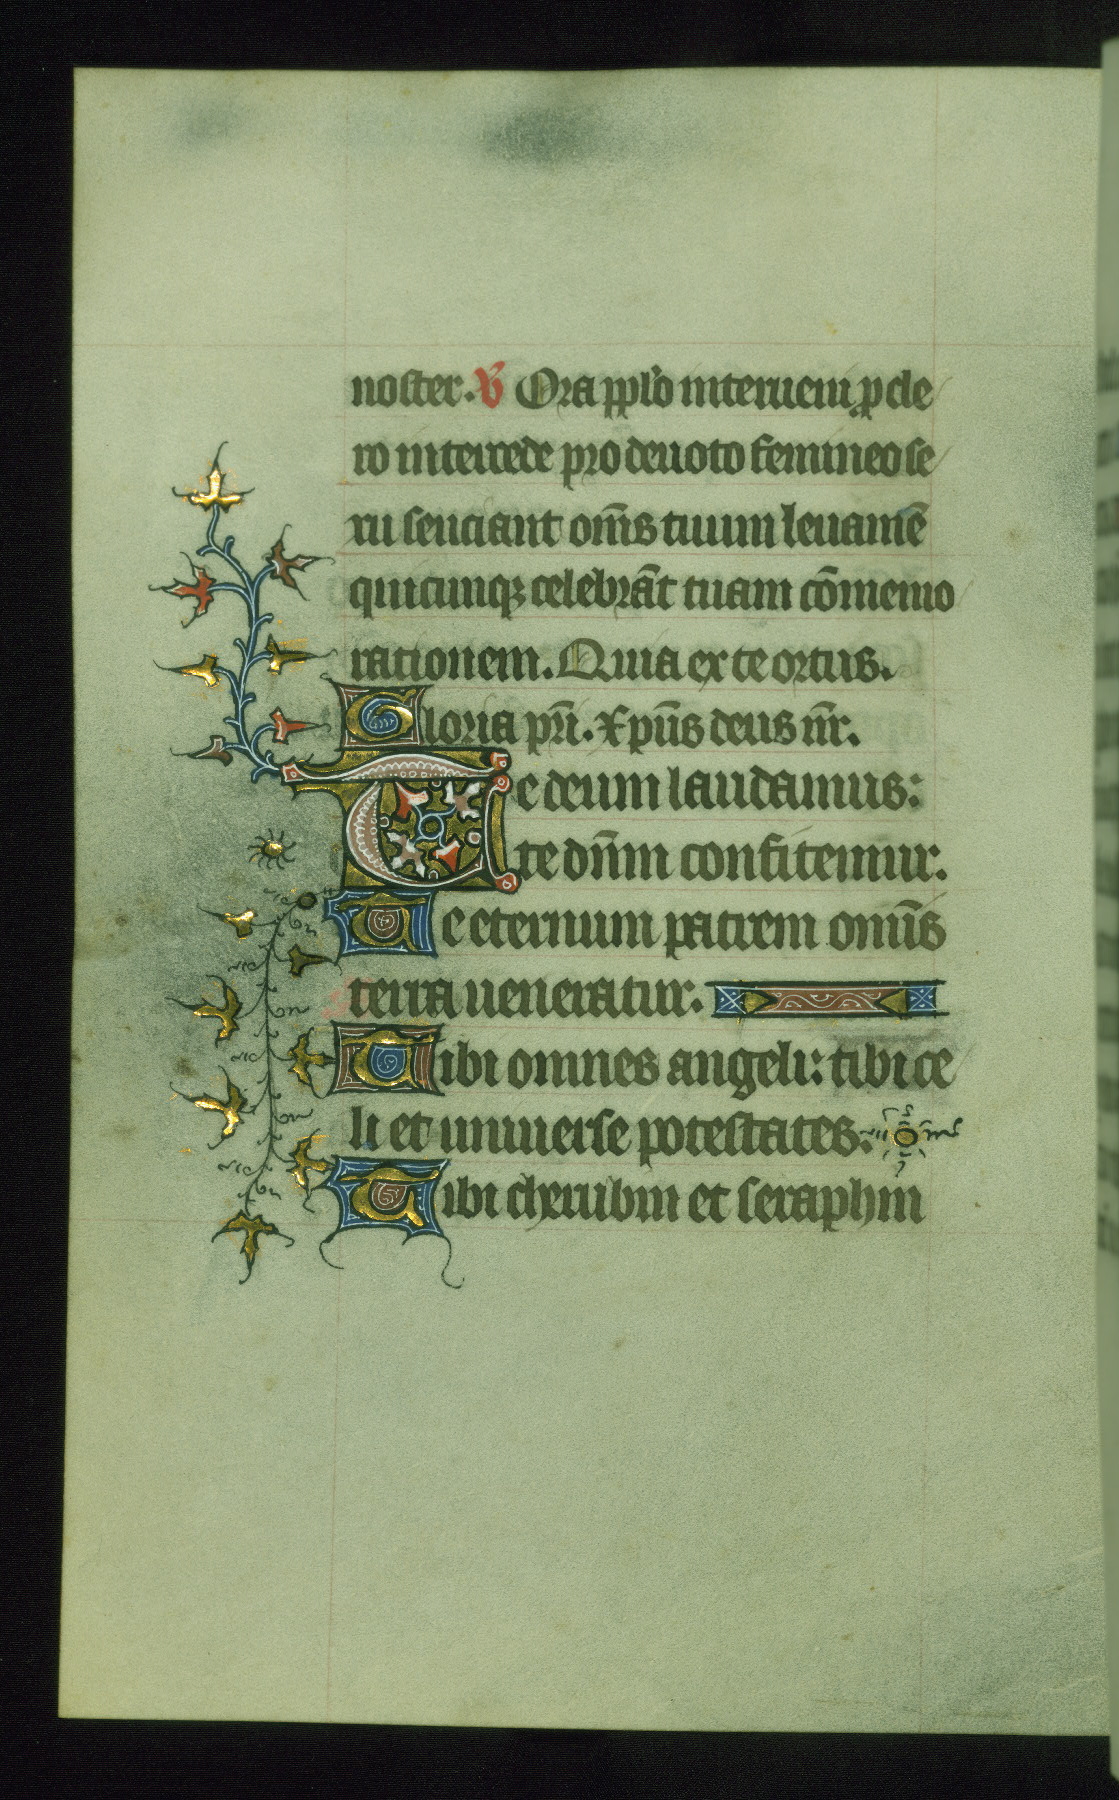 noster. V Ora pplo interueni p cle
ro intercede pro deuoto femineo se
xu senciant oms tuum leuamē
quicunqꝫ celebrāt tuam cōmemo
rationem. Quia ex te ortus.
Gloria pri. Xpūs deus nr̄.
Te deum laudamus:
te dn̄m confitemur.
Te eternum patrem omīs
terra ueneratur.
Tibi omnes angeli: tibi ce
li et uniuerse potestates.
Tibi cherubin et seraphin